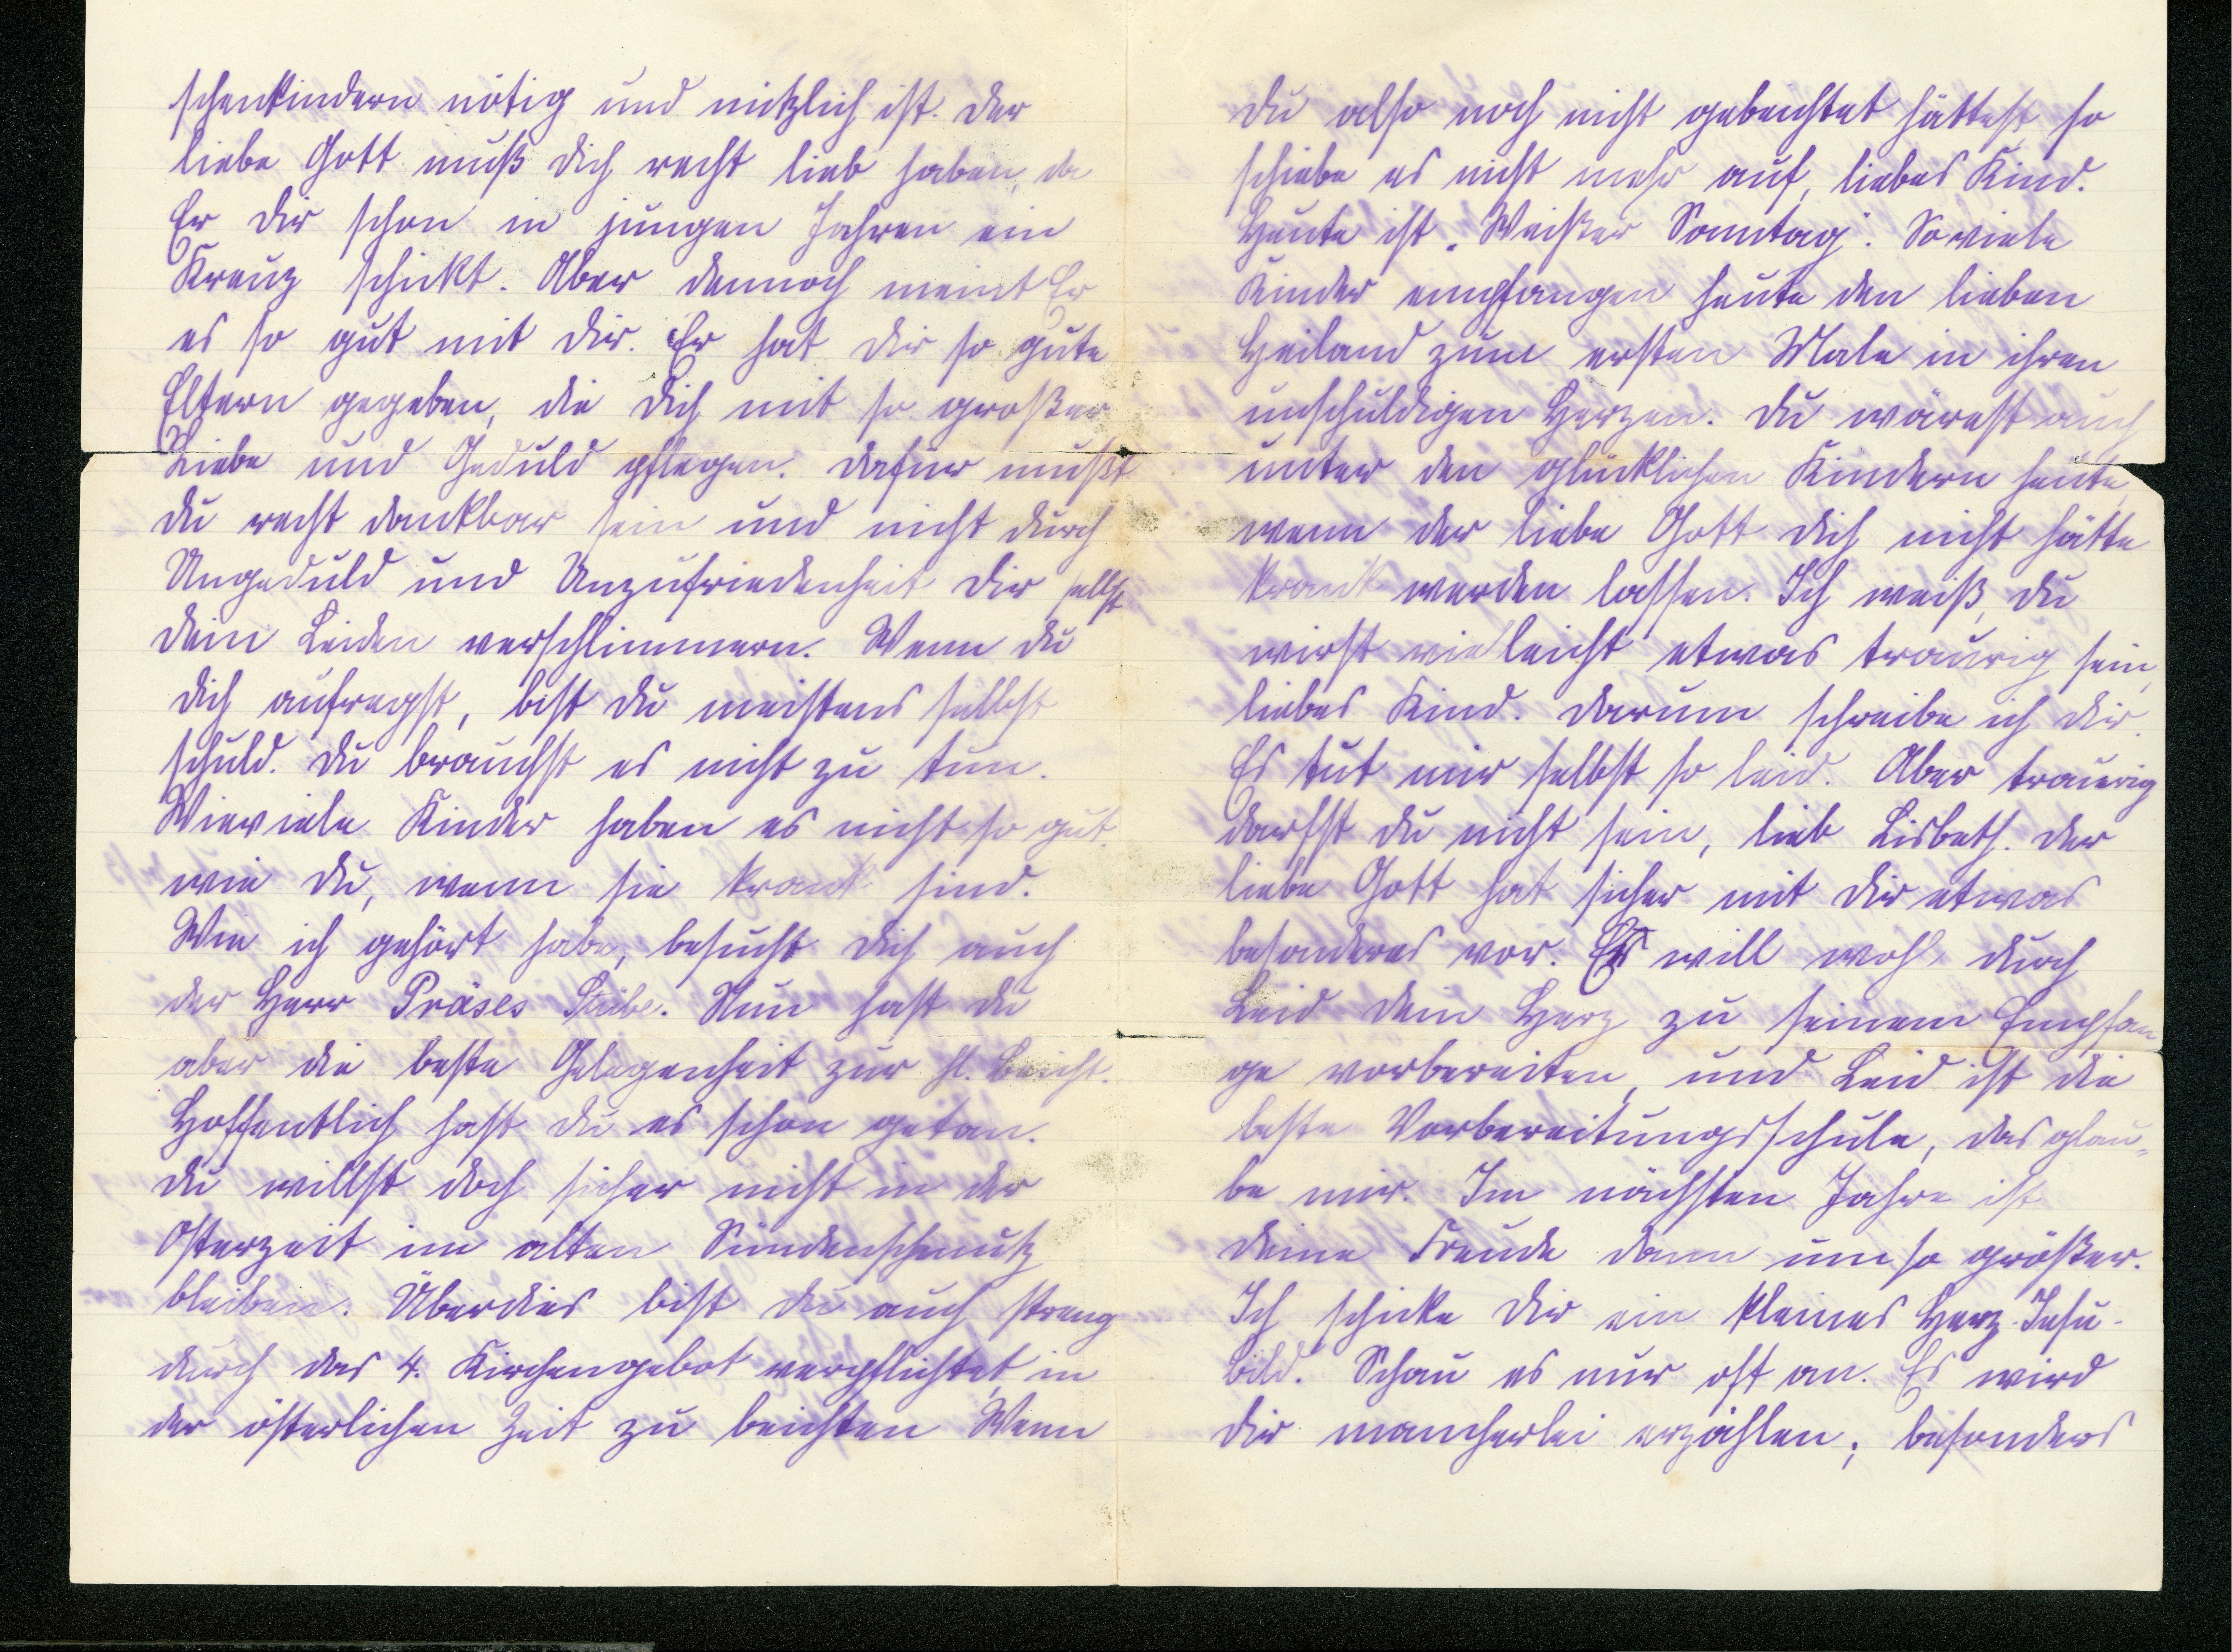 schenkindern nötig und nützlich ist. Der
liebe Gott muß dich recht lieb haben, da
Er dir schon in jungen Jahren ein
Kreuz schickt. Aber dennoch meint Er
es so gut mit dir. Er hat dir so gute
Eltern gegeben, die dich mit so großer
Liebe und Geduld pflegen. Dafür mußt
du recht dankbar sein und nicht durch
Ungeduld und Unzufriedenheit dir selbst
dein Leiden verschlimmern. Wenn du
dich aufregst, bist du meistens selbst
schuld. Du brauchst es nicht zu tun.
Wieviele Kinder haben es nicht so gut
wie du, wenn sie krank sind.
Wie ich gehört habe, besucht dich auch
der Herr Präses Stübe. Nun hast du
aber die beste Gelegenheit zur hl. Beicht.
Hoffentlich hast du es schon getan.
Du willst doch sicher nicht in der
Osterzeit im alten Sündenschmutz
bleiben. Überdies bist du auch streng
durch das 4. Kirchengebot verpflichtet, in
der österlichen Zeit zu beichten. Wenn
du also noch nicht gebeichtet hättest, so
schiebe es nicht mehr auf, liebes Kind.
Heute ist „Weißer Sonntag". So viele
Kinder empfangen heute den lieben
Heiland zum ersten Male in ihren
unschuldigen Herzen. Du wärest auch
unter den glücklichen Kindern heute,
wenn der liebe Gott dich nicht hätte
krank werden lassen. Ich weiß, du
wirst vielleicht etwas traurig sein,
liebes Kind. Darum schreibe ich dir.
Es tut mir selbst so leid. Aber traurig
darfst du nicht sein, lieb Lisbeth. Der
liebe Gott hat sicher mit dir etwas
besonderes vor. Er will wohl durch
Leid dein Herz zu seinem Empfan
ge vorbereiten, und Leid ist die
beste Vorbereitungsschule, das glau-
be mir. Im nächsten Jahre ist
deine Freude dann um so größer.
Ich schicke dir ein kleines Herz-Jesu-
bild. Schau es nur oft an. Es wird
dir mancherlei erzählen, besonders